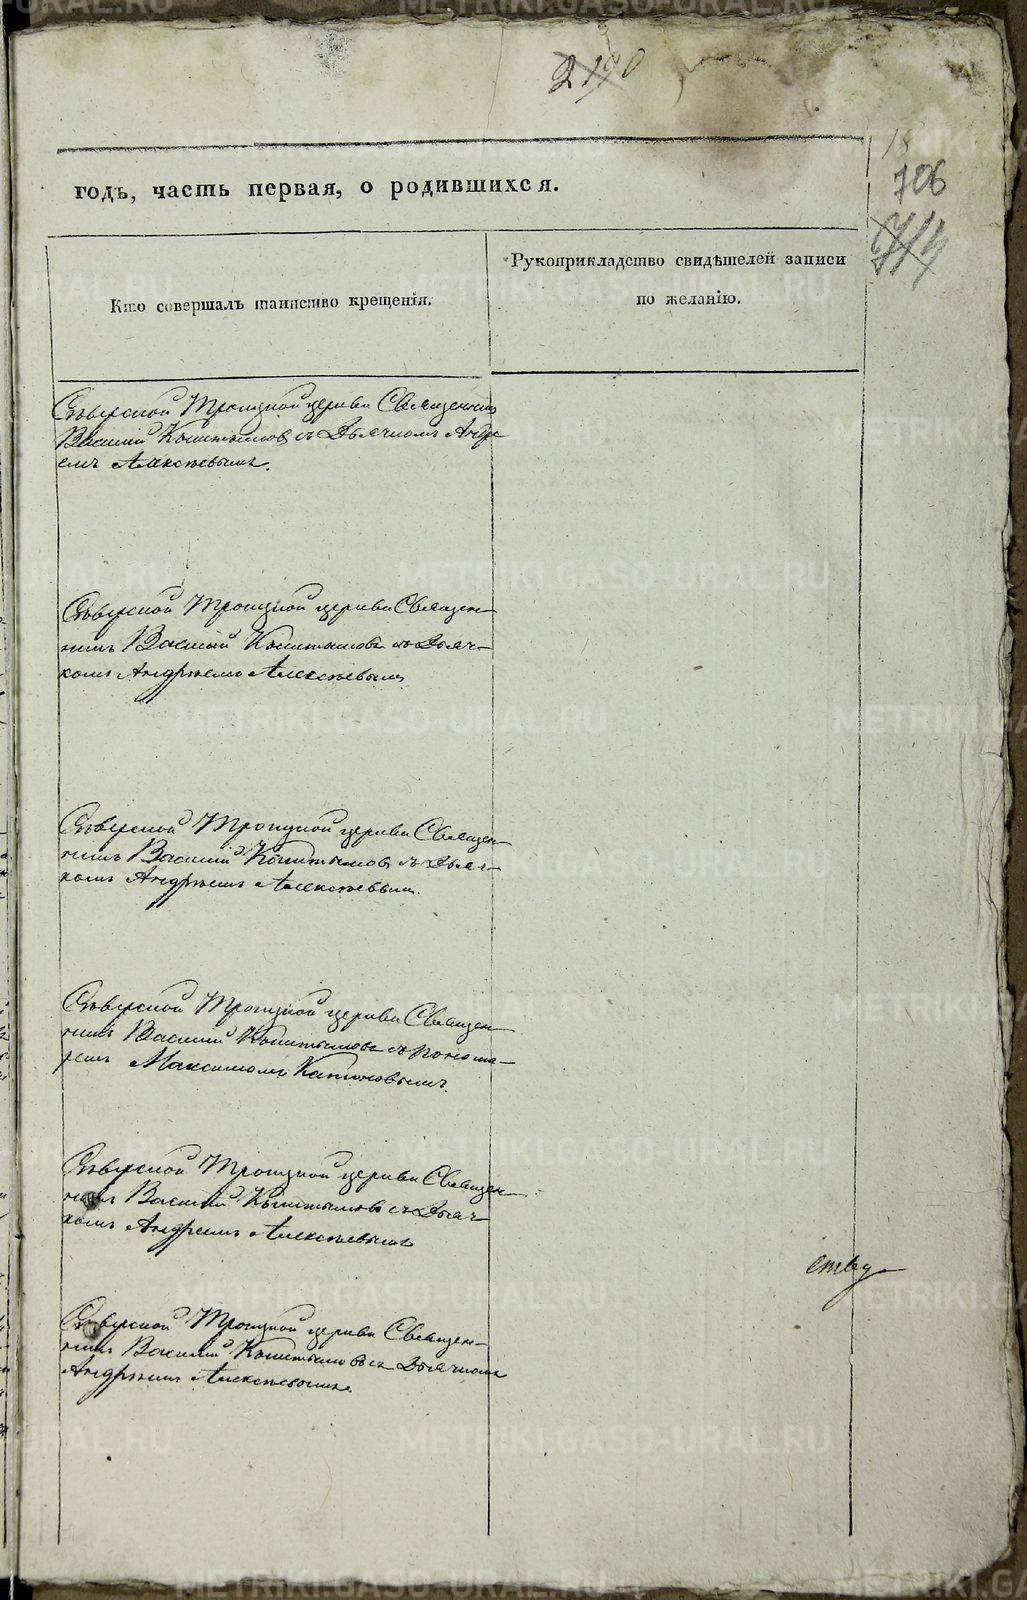 2190
18
706
714
годъ, часть первая, о родившихся.
Кто совершалъ таинство крещенія.
Рукоприкладство свидѣтелей записи
по желанію.
Сѣверской Троицкой церкви Священникъ
Василій Кыштымовъ съ Дьячкомъ Андре
емъ Алексѣевымъ.
Сѣверской Троицкой церкви Священ-
никъ Василій Кыштымовъ съ Дьяч-
комъ Андрѣемъ Алексѣевымъ
Сѣверской Троицкой церкви Священ-
никъ Василій Кыштымовъ съ Дьяч-
комъ Андрѣемъ Алексѣевымъ.
Сѣверской Троицкой церкви Священ-
никъ Василій Кыштымовъ съ Понома-
ремъ Максимомъ Капоновымъ
Сѣверской Троицкой церкви Священ-
никъ Василій Кыштымовъ съ Дьяч-
комъ Андреемъ Алексѣевымъ
ству
Сѣверской Троицкой церкви Священ-
никъ Василій Кыштымовъ съ Дьячкомъ
Андрѣемъ Алексѣевымъ.
METRIKI.GASO-URAL.RU